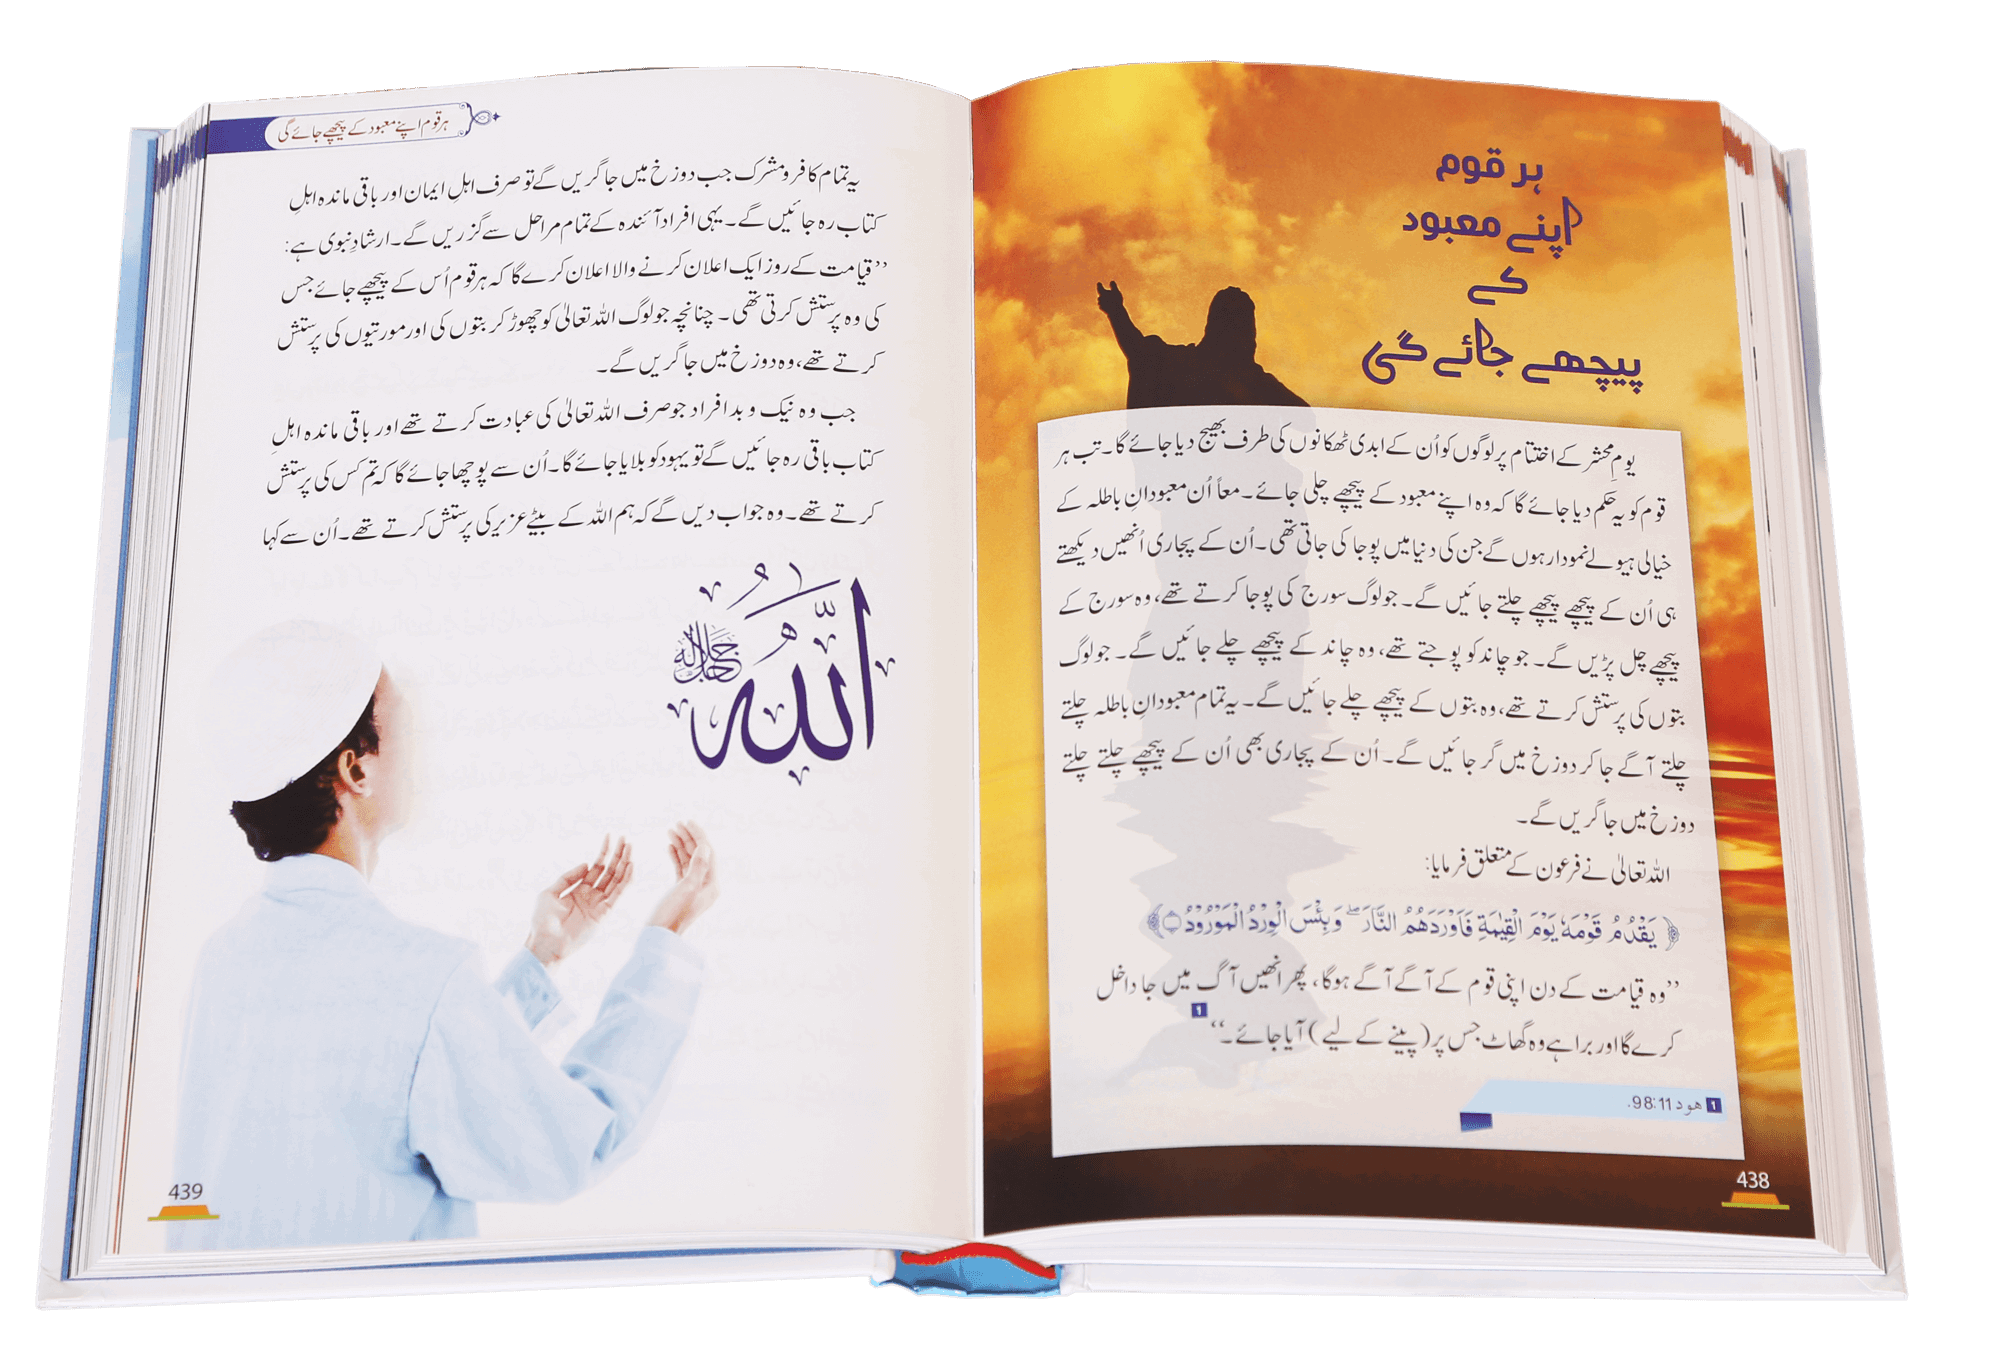 ہر قوم
اپنے معبود
کے
پیچھے جائے گی
یومِ محشر کے اختتام پر لوگوں کو اُن کے ابدی ٹھکانوں کی طرف بھیج دیا جائے گا۔ تب ہر
قوم کو یہ حکم دیا جائے گا کہ وہ اپنے معبود کے پیچھے چلی جائے۔ معاً اُن معبودانِ باطلہ کے
خیالی ہیولے نمودار ہوں گے جن کی دنیا میں پوجا کی جاتی تھی۔ اُن کے پجاری اُنھیں دیکھتے
ہی اُن کے پیچھے پیچھے چلتے جائیں گے۔ جو لوگ سورج کی پوجا کرتے تھے، وہ سورج کے
پیچھے چل پڑیں گے۔ جو چاند کو پوجتے تھے، وہ چاند کے پیچھے چلے جائیں گے۔ جو لوگ
بتوں کی پرستش کرتے تھے، وہ بتوں کے پیچھے چلے جائیں گے۔ یہ تمام معبودانِ باطلہ چلتے
چلتے آگے جا کر دوزخ میں گر جائیں گے۔ اُن کے پجاری بھی اُن کے پیچھے چلتے چلتے
دوزخ میں جا گریں گے۔
اللہ تعالیٰ نے فرعون کے متعلق فرمایا:
﴿ يَقْدُمُ قَوْمَهٗ يَوْمَ الْقِيٰمَةِ فَاَوْرَدَهُمُ النَّارَ ۖ وَ بِئْسَ الْوِرْدُ الْمَوْرُوْدُ ﴾
’’وہ قیامت کے دن اپنی قوم کے آگے آگے ہوگا، پھر انھیں آگ میں جا داخل
کرے گا اور برا ہے وہ گھاٹ جس پر (پینے کے لیے) آیا جائے۔‘‘ 1
1 ھود 98:11.
438
ہر قوم اپنے معبود کے پیچھے جائے گی
یہ تمام کافر و مشرک جب دوزخ میں جا گریں گے تو صرف اہلِ ایمان اور باقی ماندہ اہلِ
کتاب رہ جائیں گے۔ یہی افراد آئندہ کے تمام مراحل سے گزریں گے۔ ارشادِ نبوی ہے:
’’قیامت کے روز ایک اعلان کرنے والا اعلان کرے گا کہ ہر قوم اُس کے پیچھے جائے جس
کی وہ پرستش کرتی تھی۔ چنانچہ جو لوگ اللہ تعالیٰ کو چھوڑ کر بتوں کی اور مورتیوں کی پرستش
کرتے تھے، وہ دوزخ میں جا گریں گے۔
جب وہ نیک و بد افراد جو صرف اللہ تعالیٰ کی عبادت کرتے تھے اور باقی ماندہ اہلِ
کتاب باقی رہ جائیں گے تو یہود کو بلایا جائے گا۔ اُن سے پوچھا جائے گا کہ تم کس کی پرستش
کرتے تھے۔ وہ جواب دیں گے کہ ہم اللہ کے بیٹے عزیر کی پرستش کرتے تھے۔ اُن سے کہا
اللّٰهُ جل جلاله
439